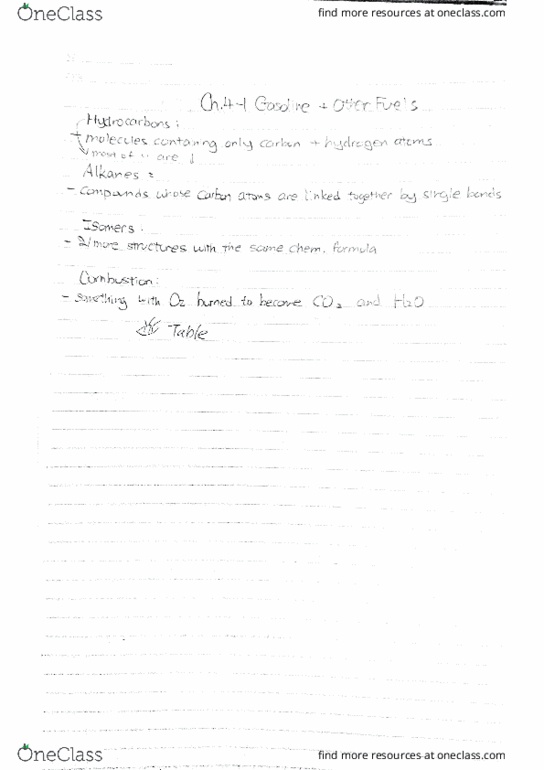 OneClass
find more resources at oneclass.com
Ch.4-1 Gasoline + Other Fuels
Hydrocarbons:
molecules containing only carbon + hydrogen atoms
most of " are ↓
Alkanes:
- compounds whose carbon atoms are linked together by single bonds
Isomers:
- 2/more structures with the same chem. formula
Combustion:
- something with O2 burned to become CO2 and H2O
Table
OneClass
find more resources at oneclass.com